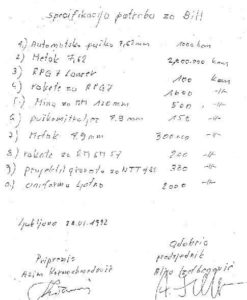 specifikacija potreba za BiH
1) Automatska puška 7,62mm 1000 kom
2) Metak 7,62 2,000.000 kom
3) RPG 7 Lancer 100 kom
4) rakete za RPG7 1000 -||-
5) Mina za MM 120mm 500 -||-
6) puškomitraljez 7.9mm 150 -||-
7) Metak 7.9mm 300000 -||-
8) rakete za RM 57 200 -||-
9) projektil za NTT 300 -||-
uniforma ljetna 2000 -||-
Ljubljana 1992
Pripremio Odobrio
predsjednik
Asim Alija Izetbegović